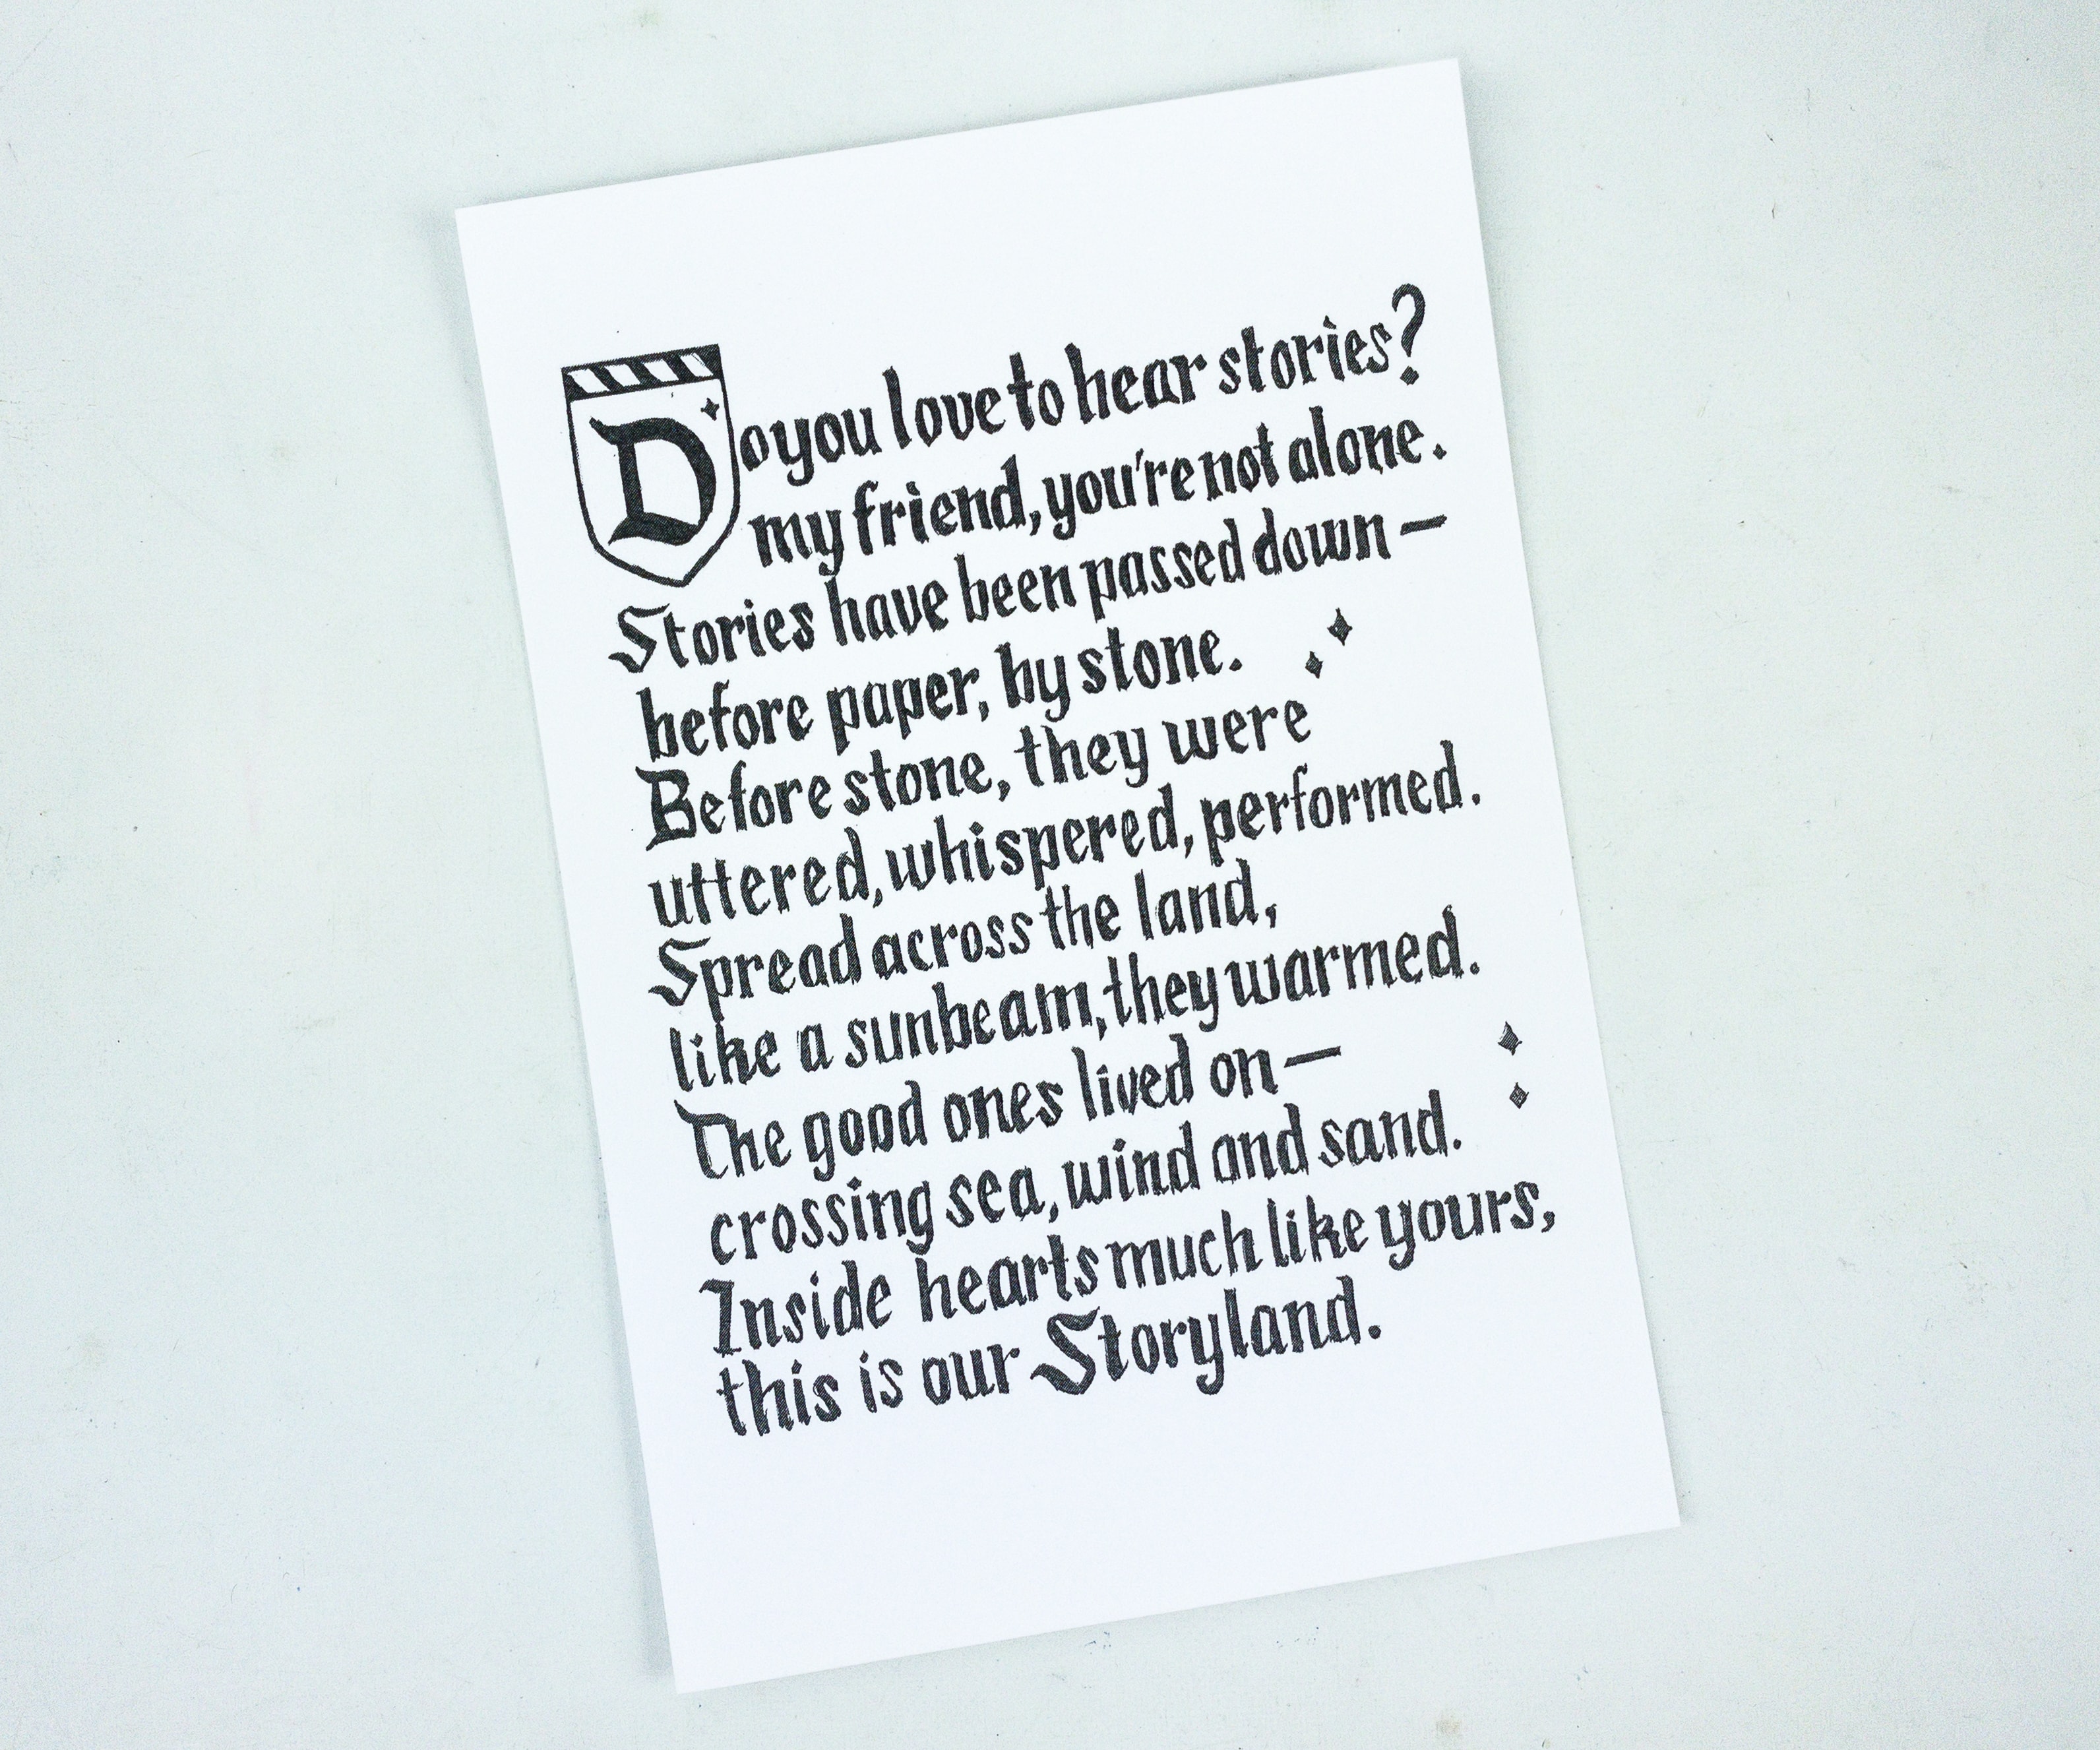 Do you love to hear stories?
my friend, you're not alone.
Stories have been passed down—
before paper, by stone.
Before stone, they were
uttered, whispered, performed.
Spread across the land,
like a sunbeam, they warmed.
The good ones lived on—
crossing sea, wind and sand.
Inside hearts much like yours,
this is our Storyland.